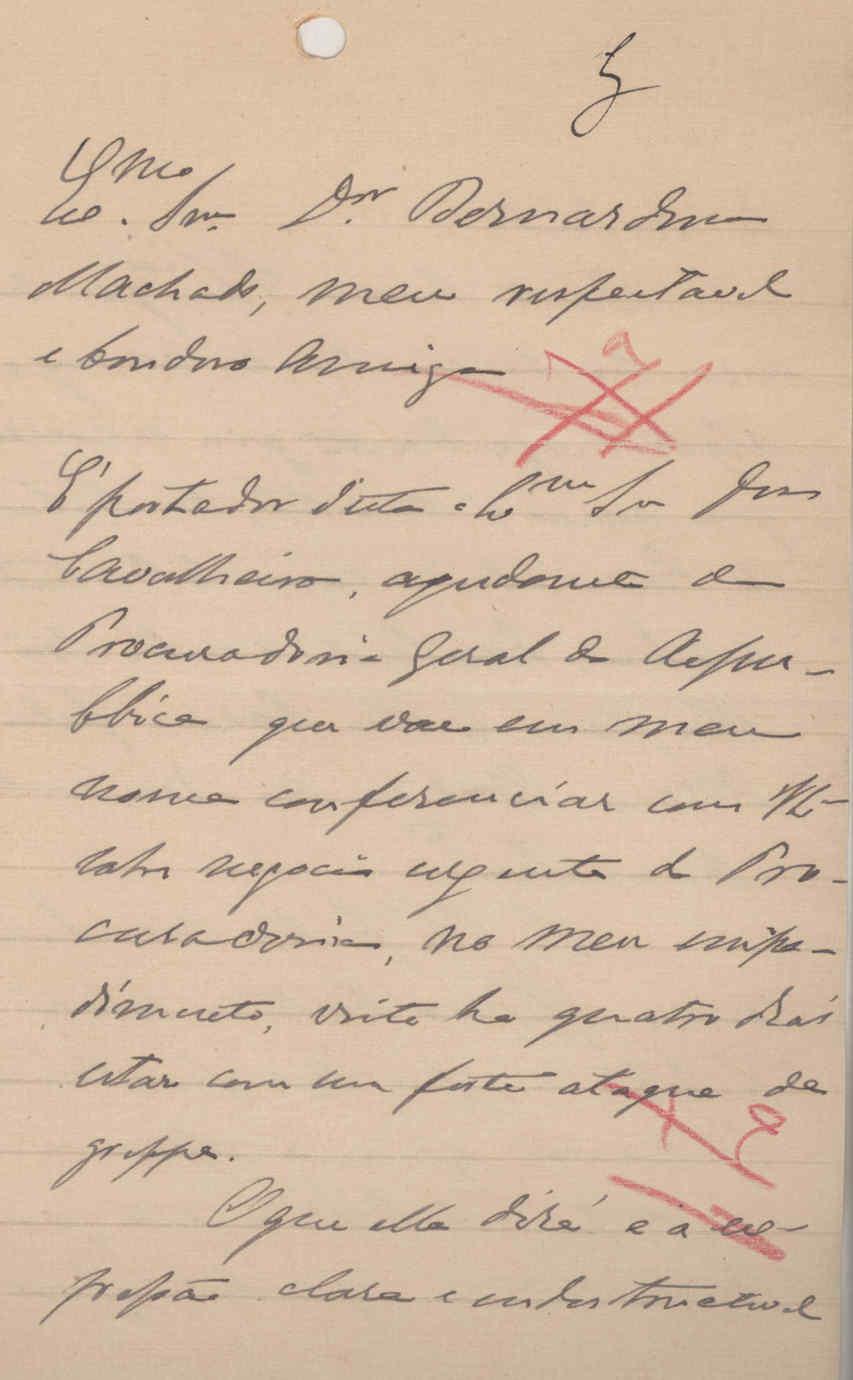 Exmo. Snr. Dr. Bernardino
Machado, meu respeitavel
e bondoso Amigo
É portador d'esta o Exmo Sr
Cavalheiro, ajudante da
Procuradoria Geral da Repu-
blica que vae em meu
nome conferenciar com V. Ex.
sobre negocio urgente da Pro-
curadoria, no meu impe-
dimento, visto ha quatro dias
estar com um forte ataque de
grippe.
O que elle dirá é a ex-
pressão clara e indestructivel